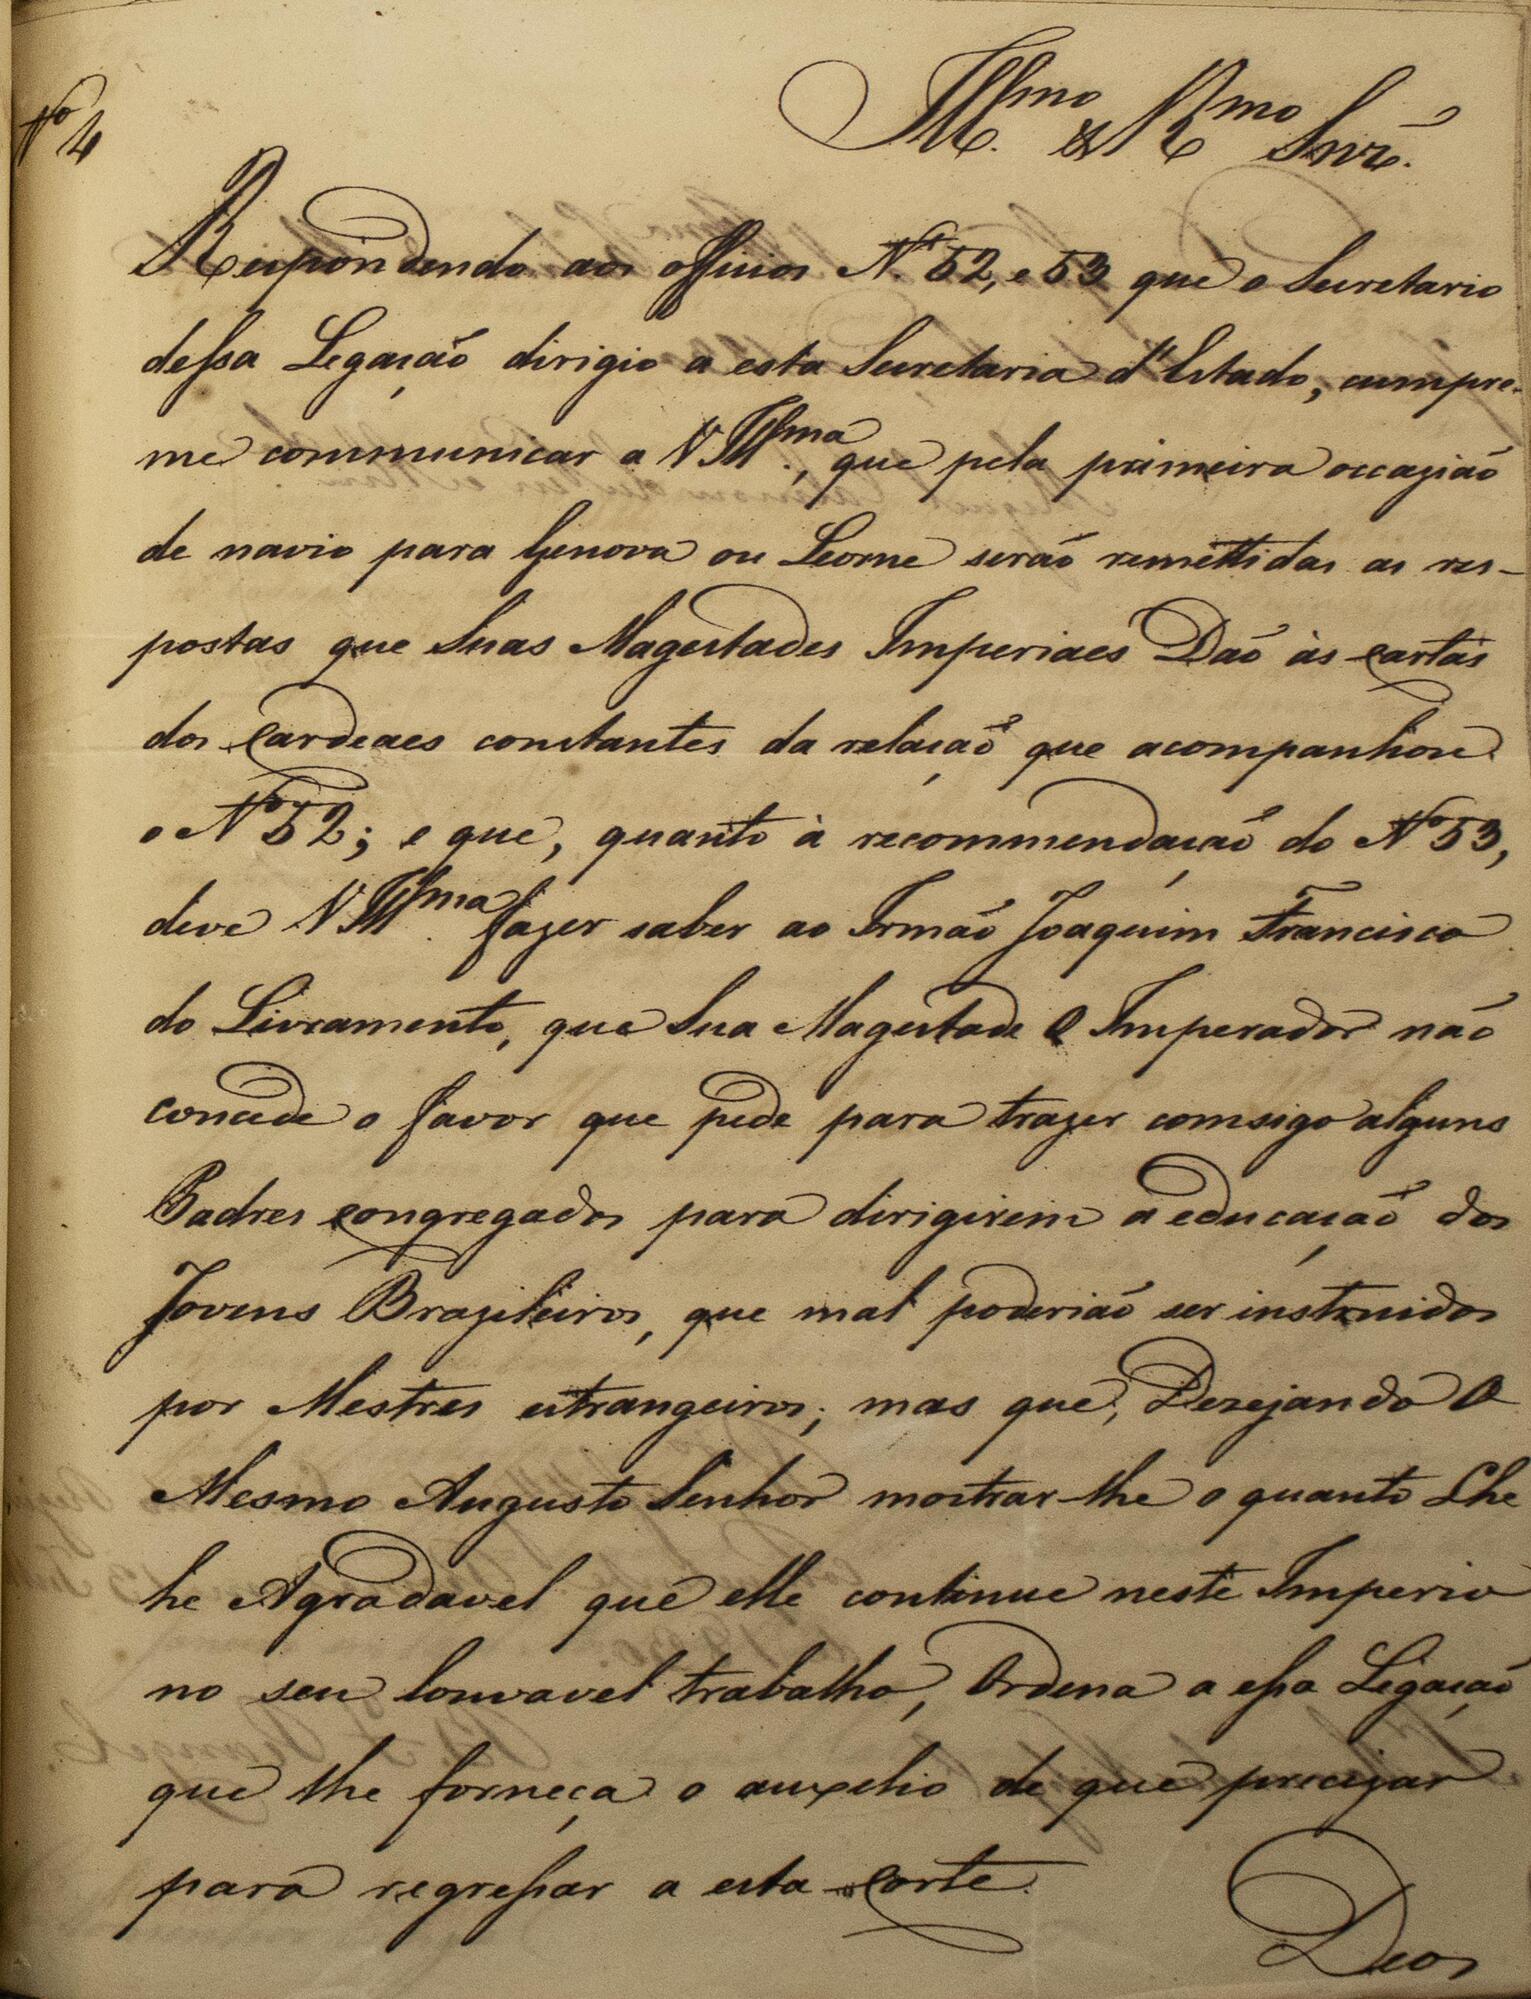 Nº 4
Illmo. & Rmo Snr.
Respondendo aos officios Nos 52, e 53 que o Secretario
dessa Legação dirigio a esta Secretaria d'Estado, cumpre-
me communicar a V Illma., que pela primeira occazião
de navio para Genova ou Leorne serão remettidas as res-
postas que Suas Magestades Imperiaes Dão às cartas
dos Cardeaes constantes da relação que acompanhou
o Nº 52; e que, quanto à recommendação do Nº 53,
deve V Illma. fazer saber ao Irmão Joaquim Francisco
do Livramento, que Sua Magestade O Imperador não
concede o favor que pede para trazer comsigo alguns
Padres congregados para dirigirem a educação dos
Jovens Brazileiros, que mal poderião ser instruidos
por Mestres estrangeiros; mas que, Dezejando O
Mesmo Augusto Senhor mostrar-lhe o quanto Lhe
he Agradavel que elle continue neste Imperio
no seu louvavel trabalho, Ordena a essa Legação
que lhe forneça o auxilio de que precizar
para regressar a esta Corte.
Deos